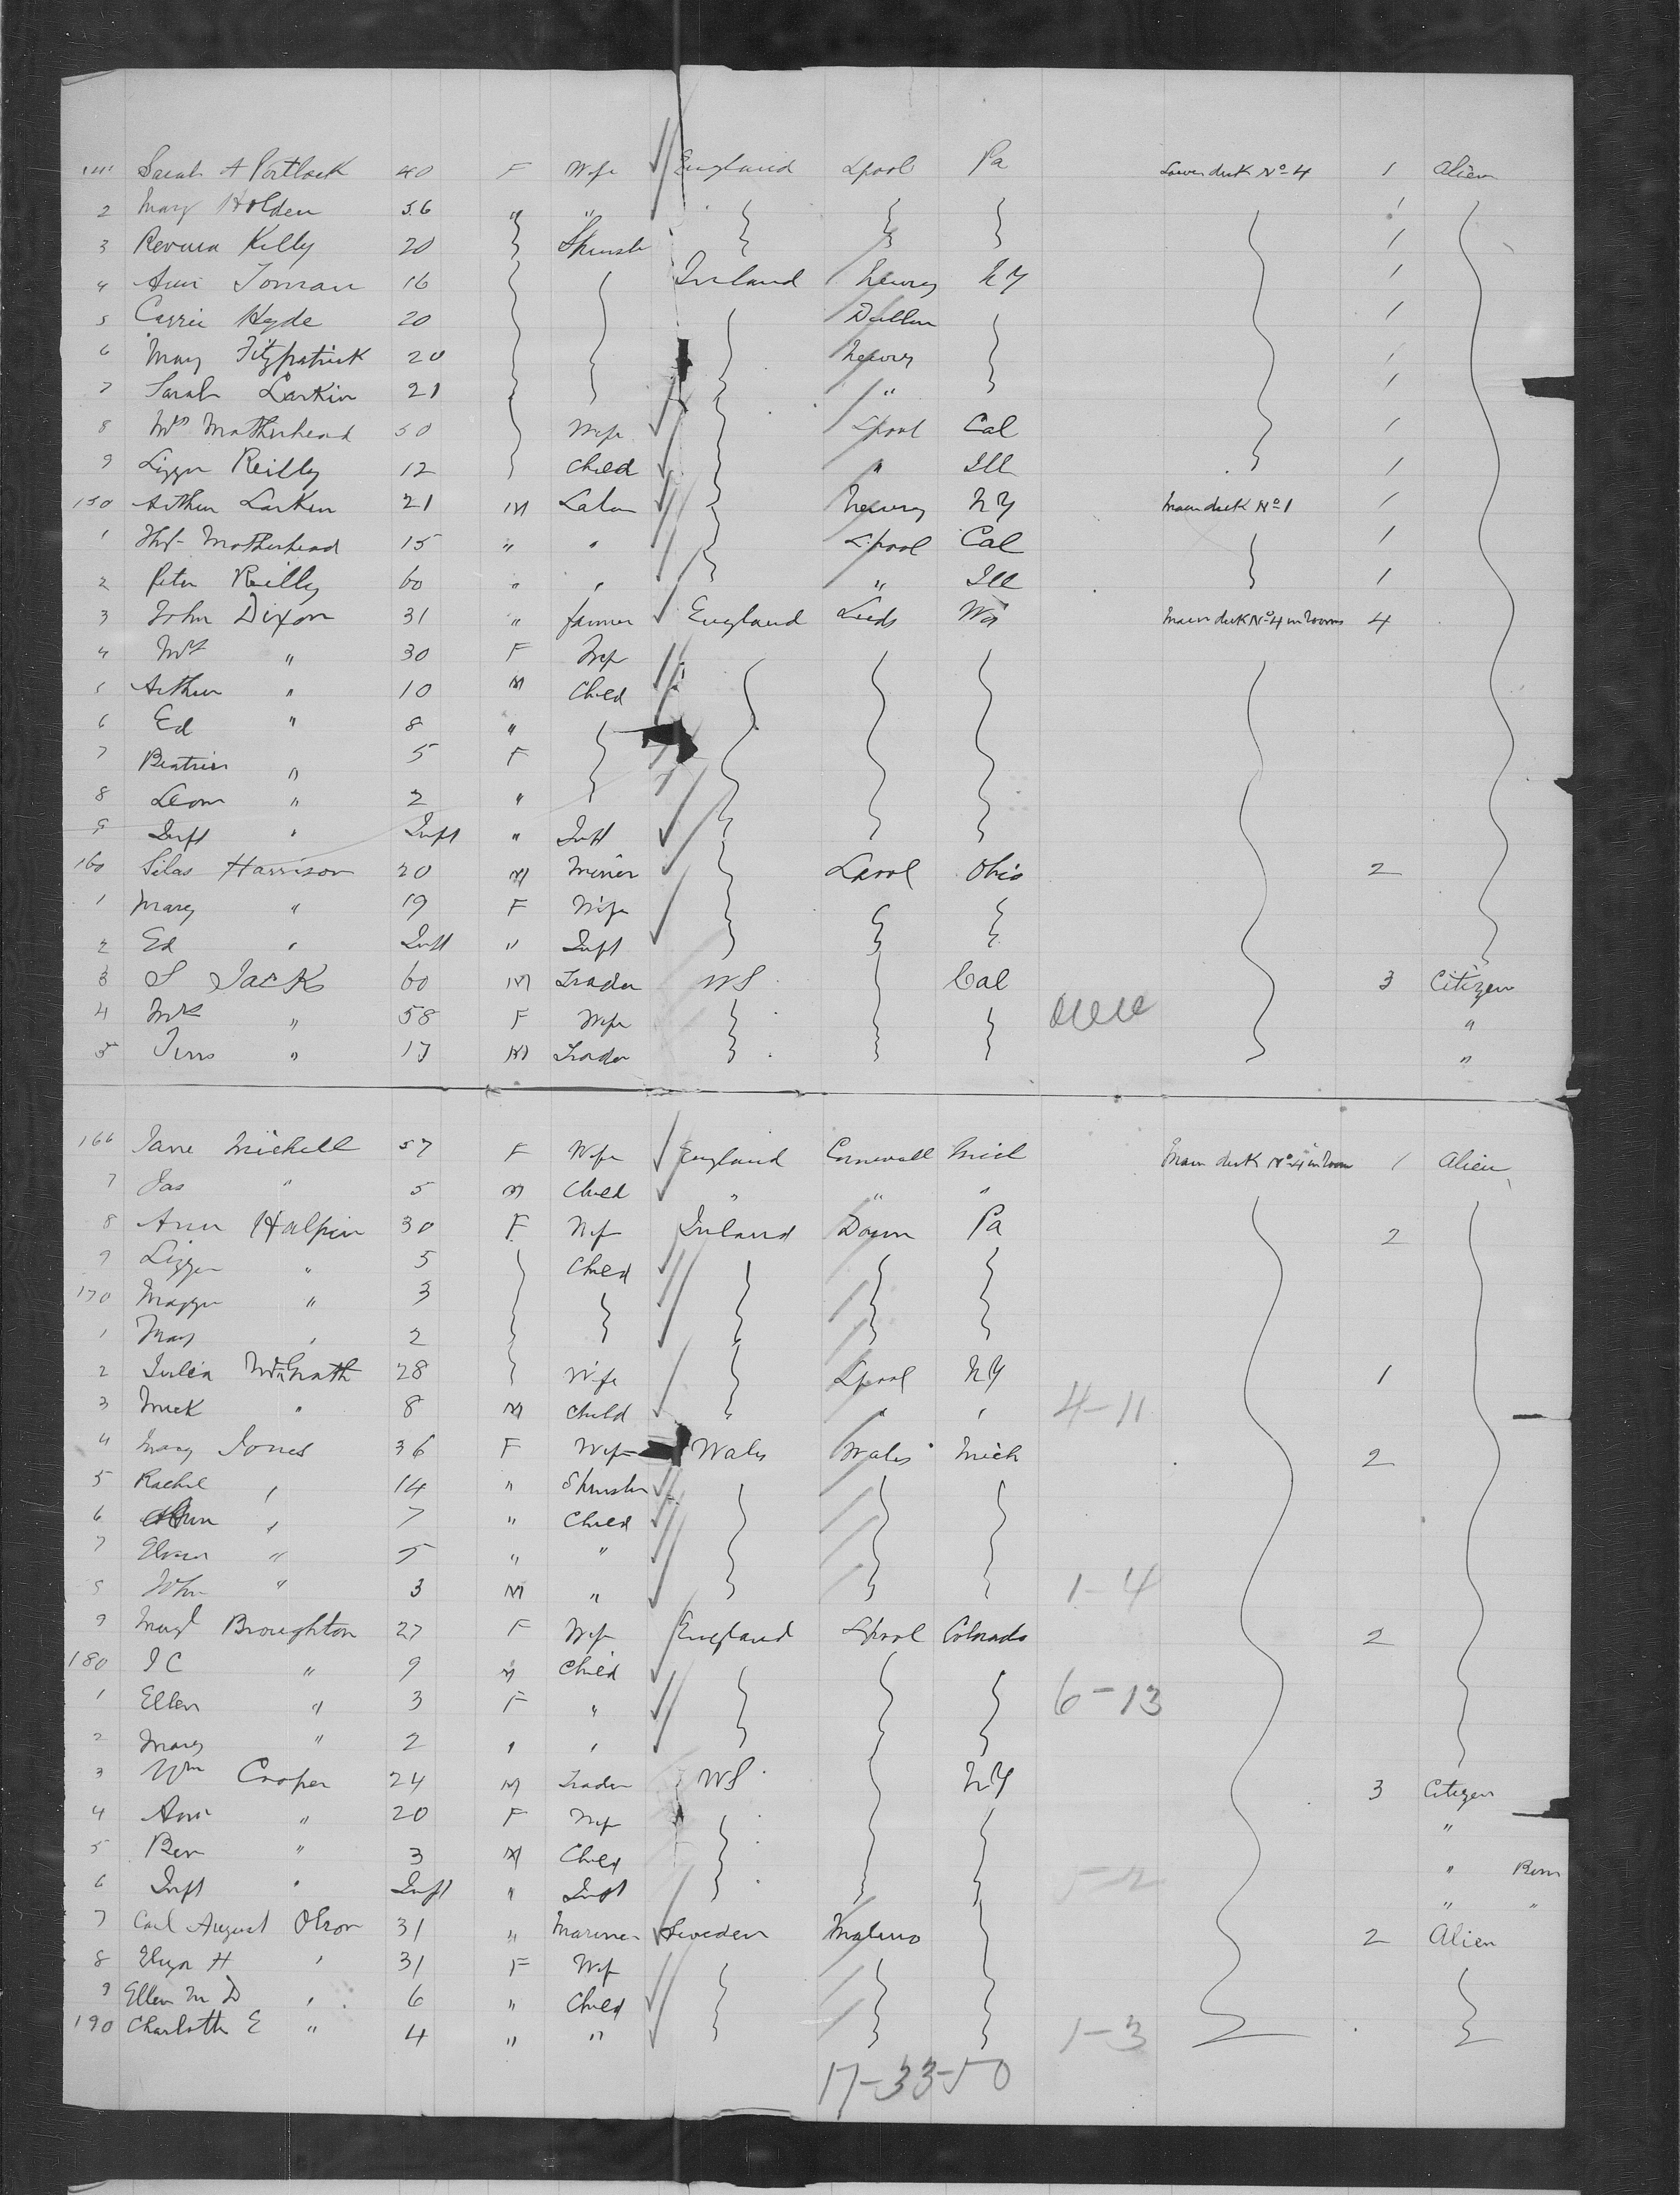 141 Sarah A Portlock 40 F Wife England Lpool Pa Lower deck No 4 1 Alien
2 Mary Holden 56 " " 1
3 Kelly 20 Spinster 1
4 Ann Toman 16 Ireland Newry NY 1
5 Carrie Hyde 20 Dublin 1
6 Mary Fitzpatrick 20 Newry 1
7 Sarah Larkin 21 " 1
8 Mrs Motherhead 50 Wife Lpool Cal 1
9 Lizzie Reilly 12 Child " Ill 1
150 Arthur Larkin 21 M Labor Newry NY Main deck No 1 1
1 Motherhead 15 " " Lpool Cal 1
2 Peter Reilly 60 " " " Ill 1
3 John Dixon 31 " farmer England Leeds Main deck No 4 in rooms 4
4 Mrs " 30 F Wife
5 Arthur " 10 M Child
6 Ed " 8 "
7 Beatrice " 5 F
8 Leon " 2 "
9 Inft " Inft " Inft
160 Silas Harrison 20 M Miner Lpool Ohio 2
1 Mary " 19 F Wife
2 Ed " Inft " Inft
3 S Jack 60 M Trader US Cal 3 Citizen
4 Mrs " 58 F Wife "
5 " 17 M Trader "
166 Jane Michell 57 F Wife England Cornwall Mich Main deck No 4 in room 1 Alien
7 Jas " 5 M Child " " "
8 Ann Halpin 30 F Wife Ireland Down Pa 2
9 Lizzie " 5 Child
170 Maggie " 3
1 May " 2
2 Julia McGrath 28 Wife Lpool NY 1
3 Mick " 8 M Child " " 4-11
4 Mary Jones 36 F Wife Wales Wales Mich 2
5 Rachel " 14 " Spinster
6 " 7 " Child
7 " 5 " "
8 John " 3 M " 1-4
9 Broughton 27 F Wife England Lpool Colorado 2
180 J C " 9 M Child
1 Ellen " 3 F " 6-13
2 Mary " 2 " "
3 Wm Cooper 24 M Trader US NY 3 Citizen
4 Ann " 20 F Wife "
5 Ben " 3 M Child "
6 Inft " Inft " Inft " "
7 Carl August Olson 31 " Mariner Sweden Malmo 2 Alien
8 Eliza H " 31 F Wife
9 Ellen M D " 6 " Child
190 Charlotte E " 4 " " 1-3
17-33-50